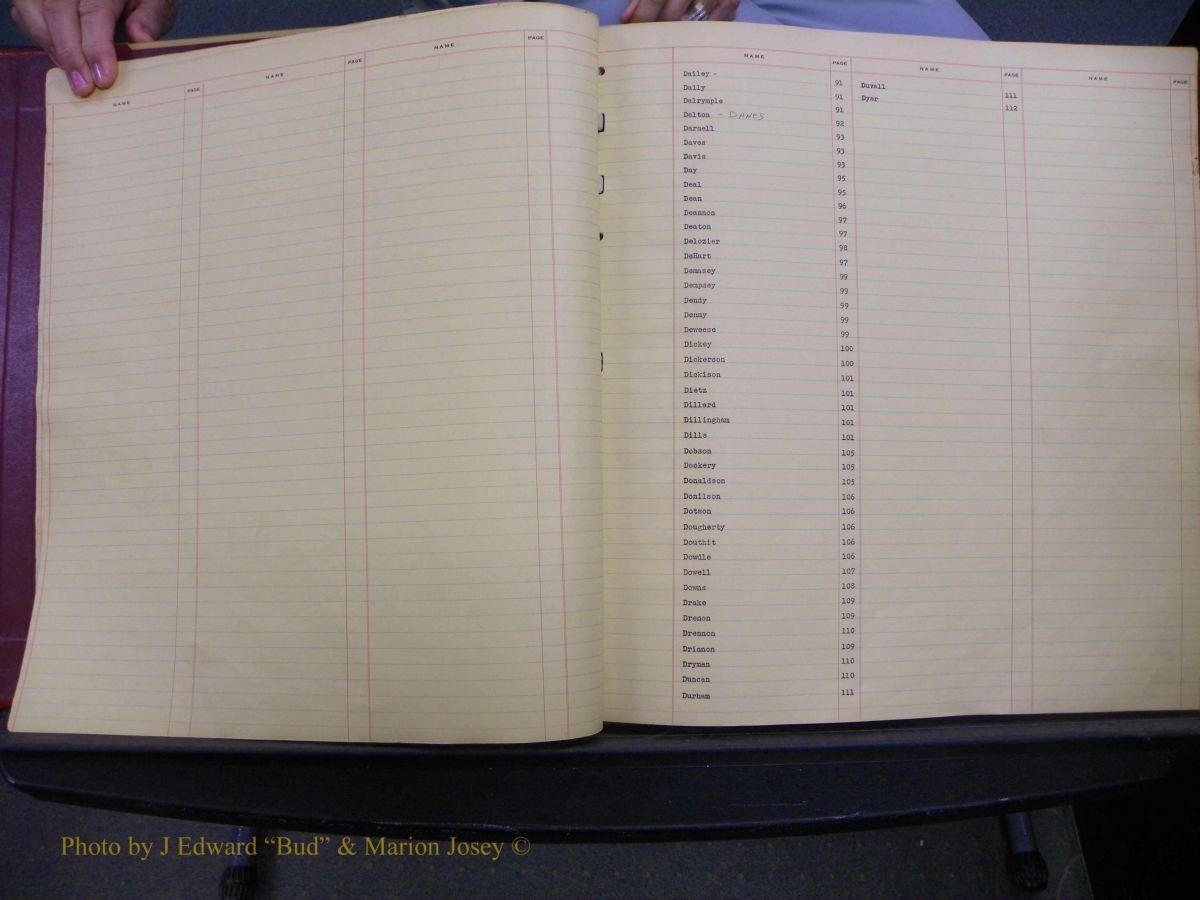 NAME PAGE NAME PAGE NAME PAGE
NAME PAGE NAME PAGE NAME PAGE
Dailey - 91
Daily 91
Dalrymple 91
Dalton - DANES 92
Darnell 93
Daves 93
Davis 93
Day 95
Deal 95
Dean 96
Deannon 97
Deaton 97
Delozier 98
DeHart 97
Demasey 99
Dempsey 99
Dendy 99
Denny 99
Deweese 99
Dickey 100
Dickerson 100
Dickison 101
Dietz 101
Dillard 101
Dillingham 101
Dills 101
Dobson 105
Dockery 105
Donaldson 105
Donilson 106
Dotson 106
Dougherty 106
Douthit 106
Dowdle 106
Dowell 107
Downs 108
Drake 109
Drenon 109
Drennon 110
Drinnon 109
Dryman 110
Duncan 110
Durham 111
Duvall 111
Dyer 112
Photo by J Edward “Bud” & Marion Josey ©